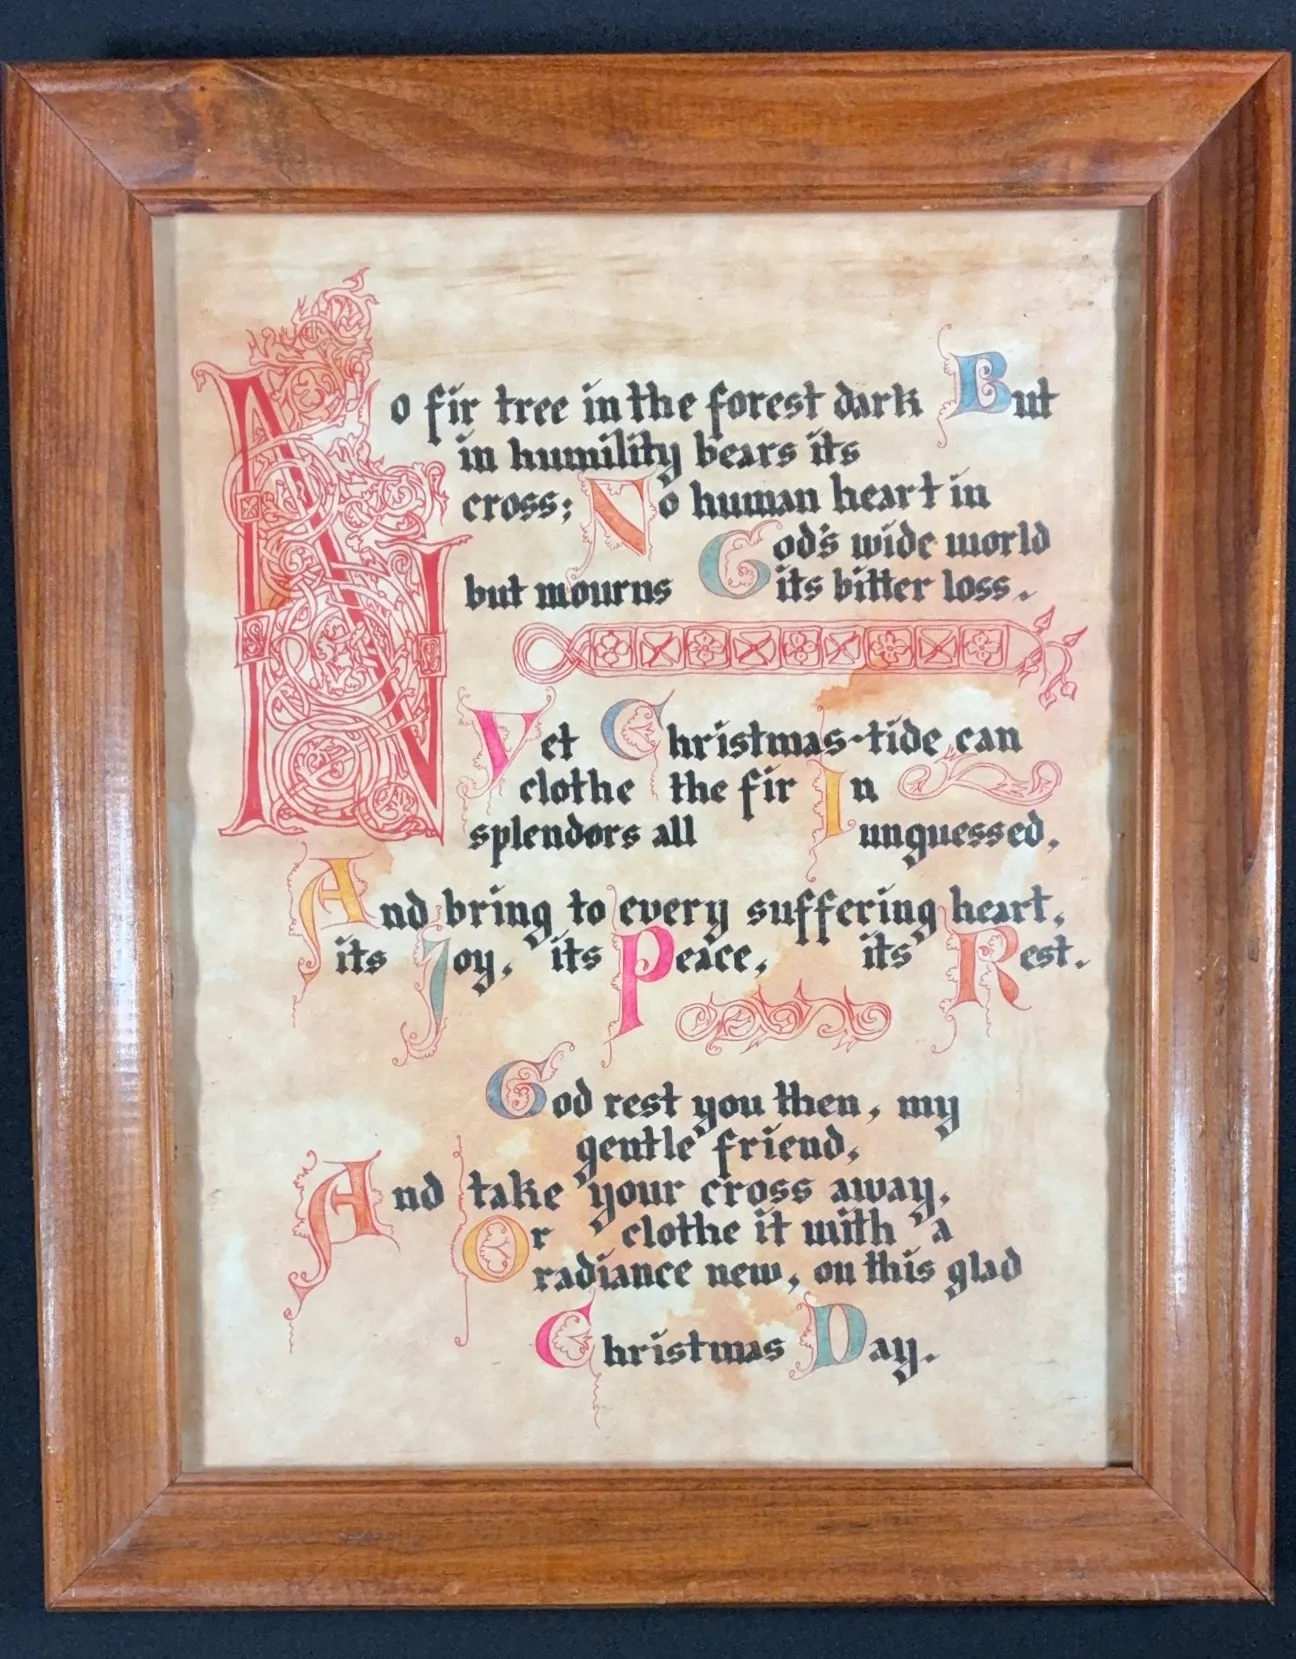 No fir tree in the forest dark But
in humility bears its
cross; No human heart in
God's wide world
but mourns its bitter loss.
Yet Christmas-tide can
clothe the fir In
splendors all unguessed,
And bring to every suffering heart,
its Joy, its Peace, its Rest.
God rest you then, my
gentle friend,
And take your cross away,
Or clothe it with a
radiance new, on this glad
Christmas Day.